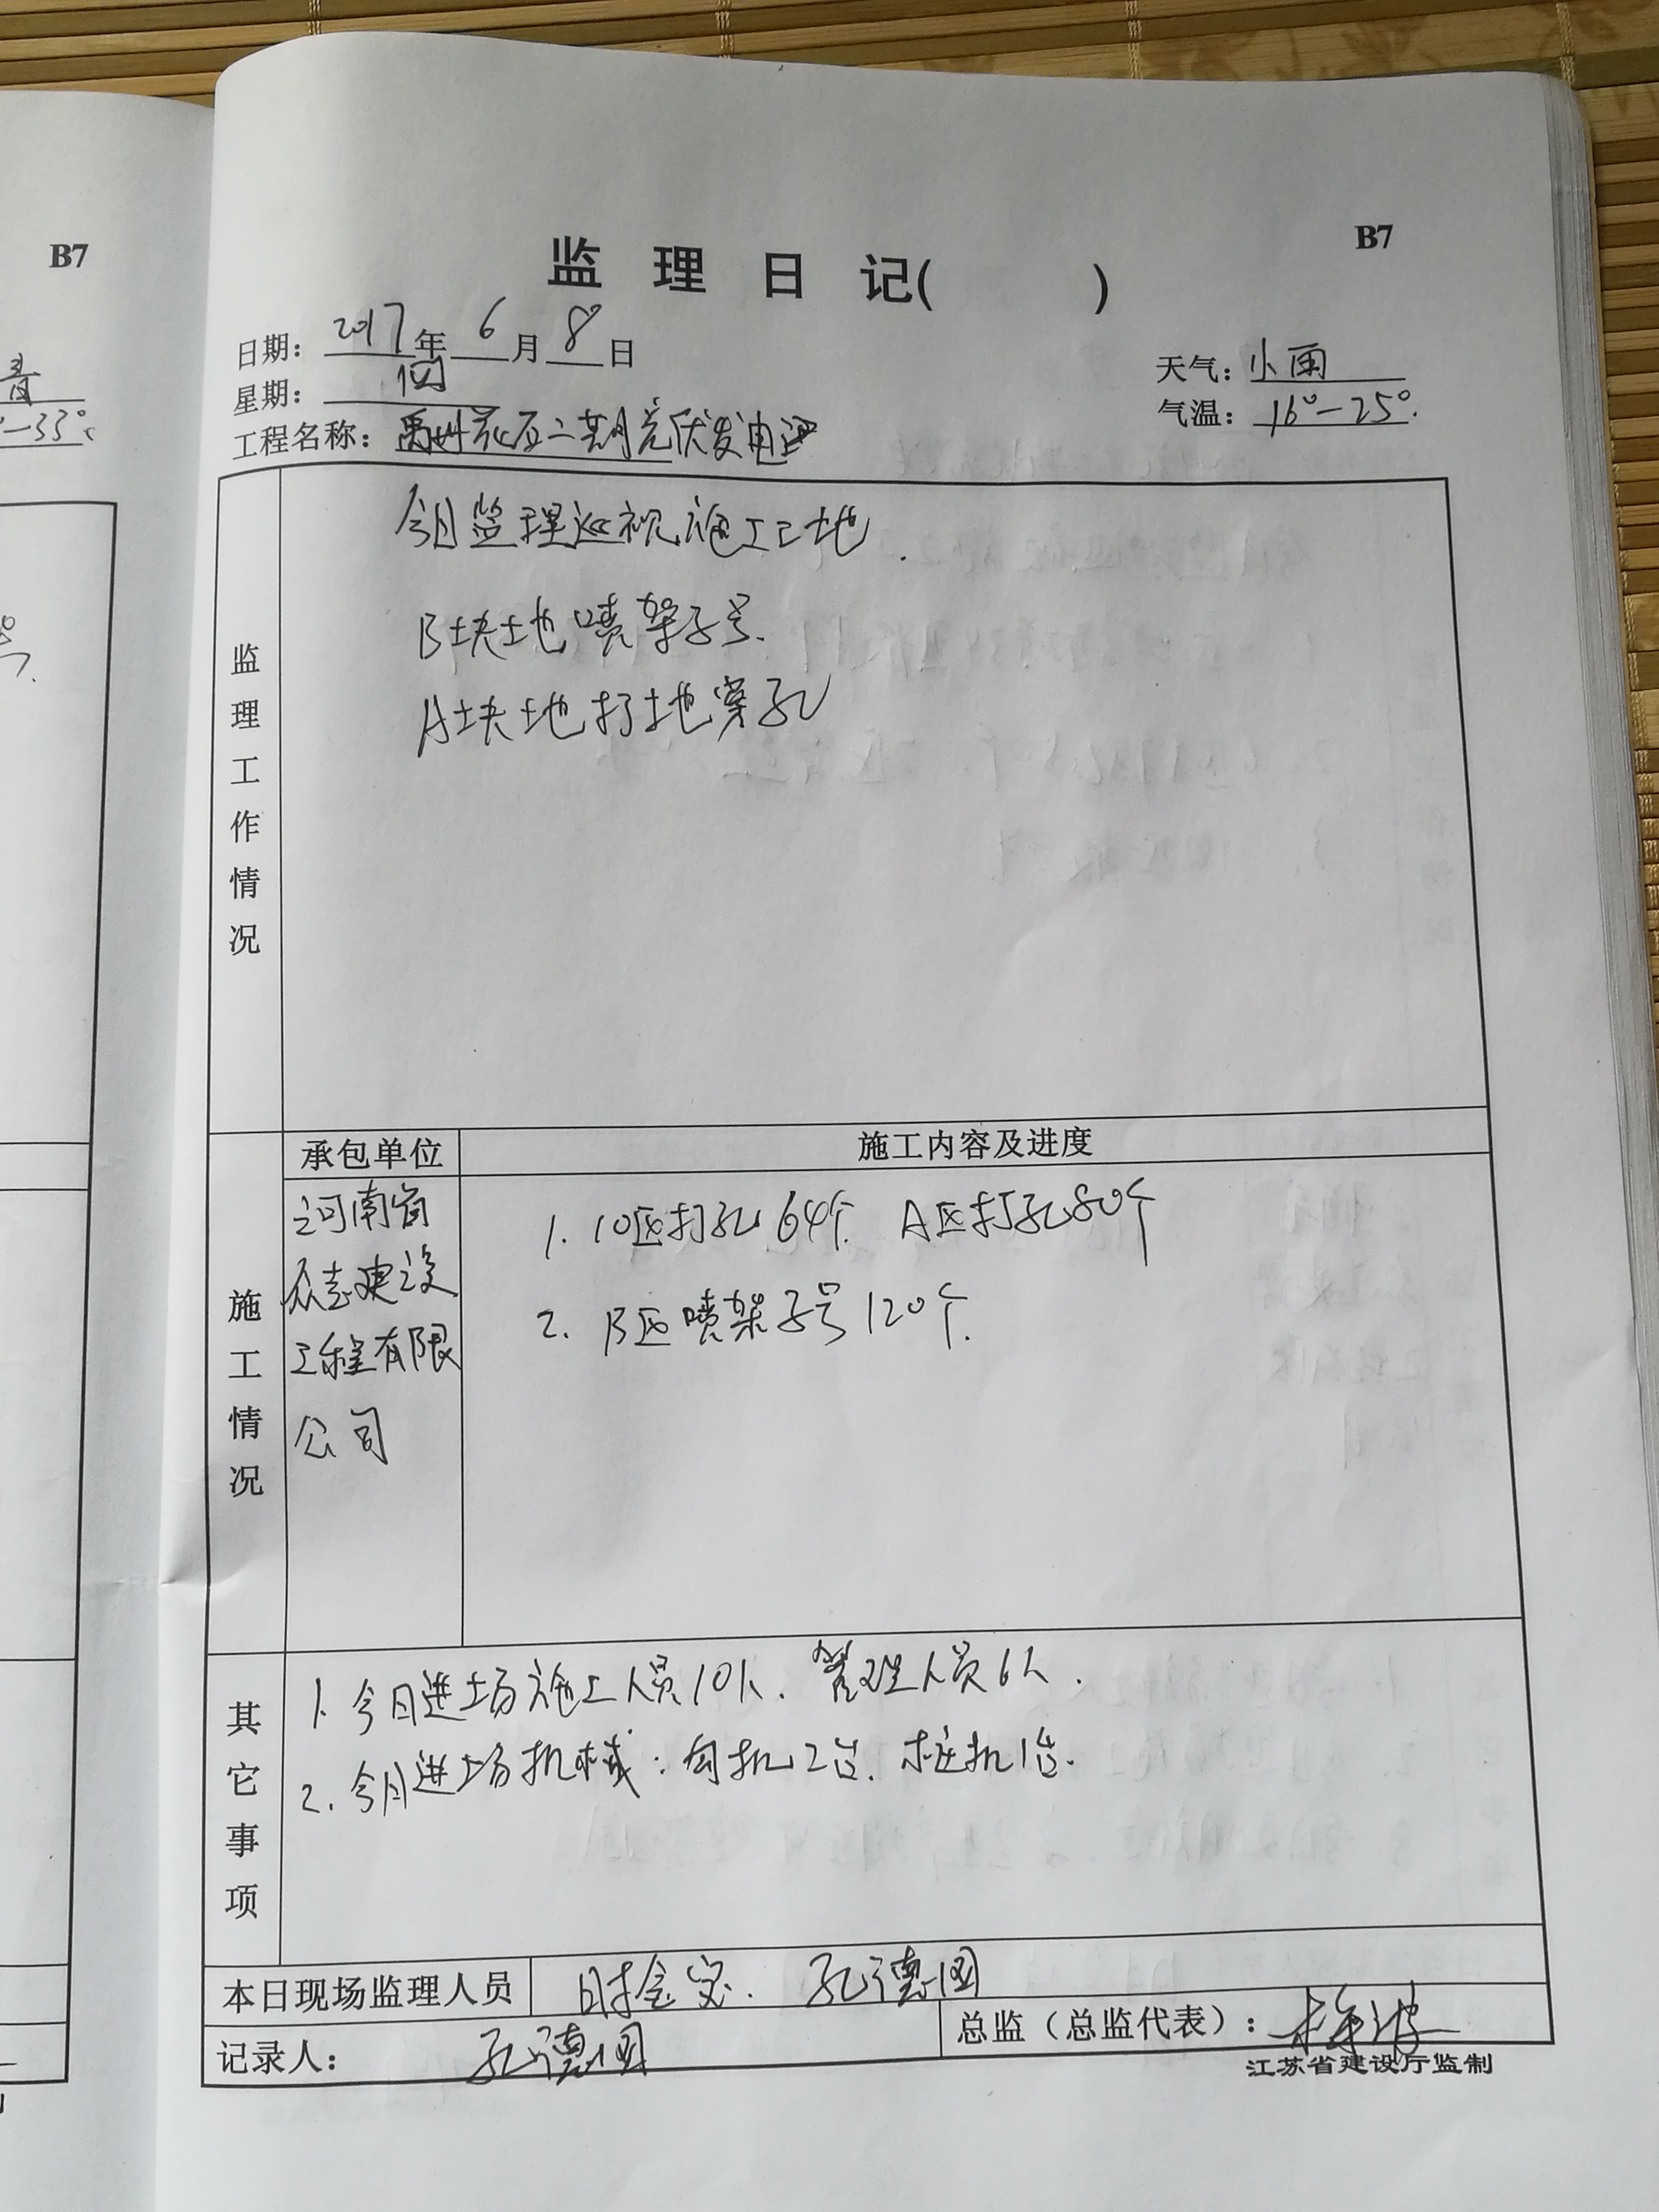 B7
B7
监 理 日 记( )
日期: 2017年 6月 8日
星期: 四
天气: 小雨
气温: 16°-25°.
工程名称: 禹州花石二期光伏发电
33°
监理工作情况
今日监理巡视施工工地.
B块土地喷架子号.
A块土地打地穿孔
承包单位 施工内容及进度
施工情况
河南省
众志建设
工程有限
公司
1. 10区打孔64个. A区打孔80个
2. B区喷架子号120个.
其它事项
1. 今日进场施工人员10人、管理人员6人.
2. 今日进场机械: 勾机2台、桩机1台.
本日现场监理人员 时金宝. 孔德团
记录人: 孔德团
总监(总监代表):
江苏省建设厅监制